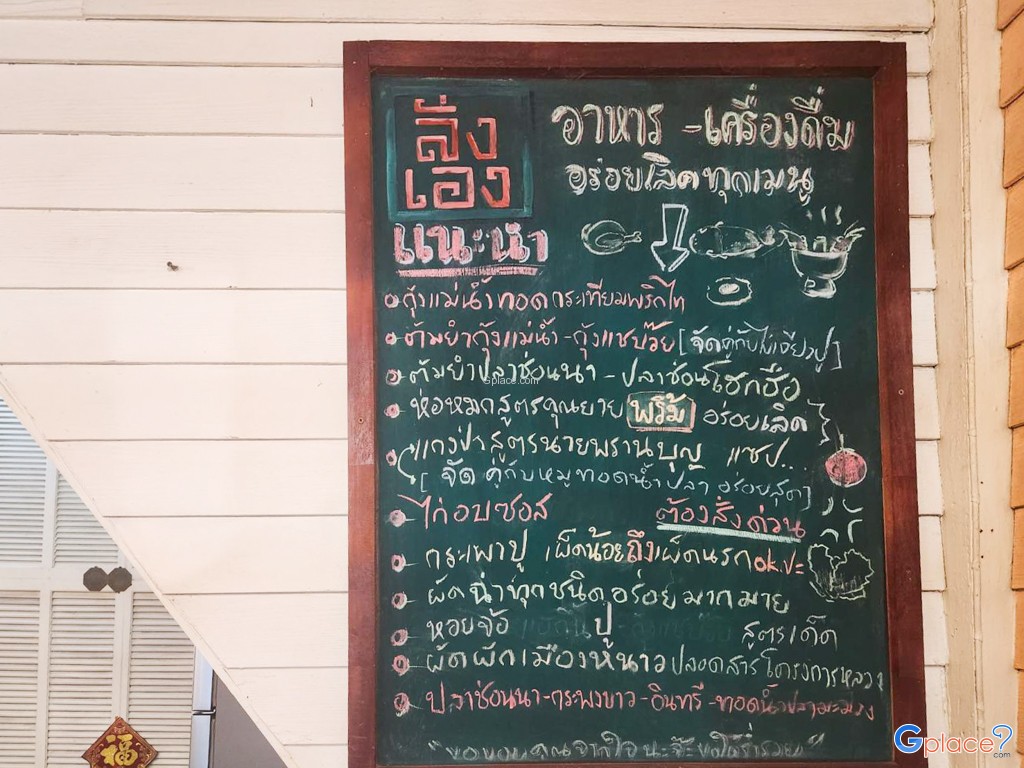 สั่งเอง
อาหาร - เครื่องดื่ม
อร่อยเลิศทุกเมนู
แนะนำ
กุ้งแม่น้ำทอดกระเทียมพริกไท
ต้มยำกุ้งแม่น้ำ - กุ้งแชบ๊วย [จัดคู่กับไข่เจียวปู]
ต้มยำปลาช่อนนา - ปลาช้อนโฮกฮือ
Gplace.com
ห่อหมกสูตรคุณยาย พรีม อร่อยเลิศ
แกงป่าสูตรนายพรานบุญ แซ่บ...
[จัด คู่กับหมูทอดน้ำปลา อร่อยสุด]
ไก่อบซอส ต้องสั่งด่วน
กระเพาปู เผ็ดน้อยถึงเผ็ดนรก ok.
ผัดฉ่าทุกชนิดอร่อยมากมาย
หอยจ้อ ปู สูตรเด็ด
ผัดผักเมืองหนาวปลอดสารโครงการหลวง
ปลาช่อนนา - กระพงขาว - อินทรี - ทอดน้ำปลามะม่วง
"ขอขอบคุณจากใจนะจ๊ะ
福
Gplace?
.com